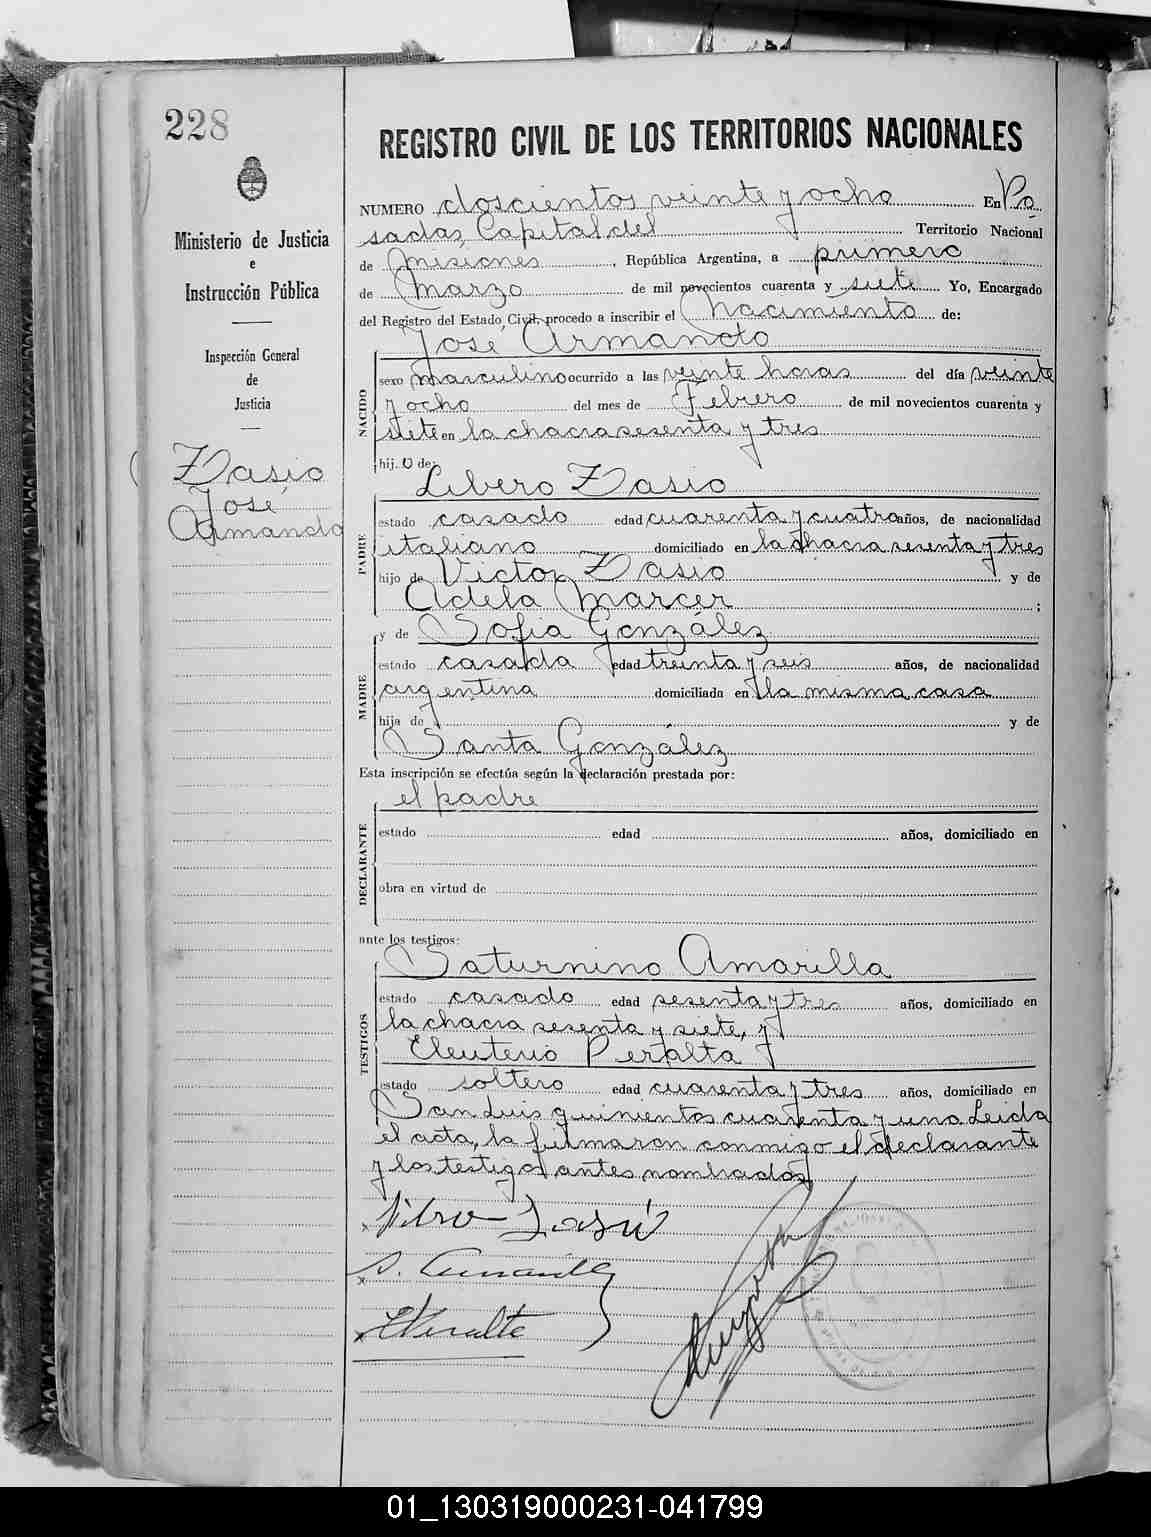 228
Ministerio de Justicia
e
Instrucción Pública
Inspección General
de
Justicia
Zasio
José
Armando
REGISTRO CIVIL DE LOS TERRITORIOS NACIONALES
NUMERO doscientos veinte y ocho En Po
sadas, Capital del Territorio Nacional
de Misiones, República Argentina, a primero
de Marzo de mil novecientos cuarenta y siete Yo, Encargado
del Registro del Estado Civil, procedo a inscribir el Nacimiento de:
José Armando
NACIDO
sexo masculino ocurrido a las veinte horas del día veinte
y ocho del mes de Febrero de mil novecientos cuarenta y
siete en la chacra sesenta y tres
hij. o de:
Libero Zasio
PADRE
estado casado edad cuarenta y cuatro años, de nacionalidad
italiano domiciliado en la chacra sesenta y tres
hijo de Victor Zasio y de
Adela Marcer ;
y de Sofia González
MADRE
estado casada edad treinta y seis años, de nacionalidad
argentina domiciliada en la misma casa
hija de y de
Santa González
Esta inscripción se efectúa según la declaración prestada por:
el padre
DECLARANTE
estado edad años, domiciliado en
obra en virtud de
ante los testigos:
Saturnino Amarilla
TESTIGOS
estado casado edad sesenta y tres años, domiciliado en
la chacra sesenta y siete, y
Eleuterio Peralta
estado soltero edad cuarenta y tres años, domiciliado en
San Luis quinientos cuarenta y uno Leida
el acta, la firmaron conmigo el declarante
y los testigos antes nombrados
Libero Zasio
S. Amarilla
E Peralta
01_130319000231-041799